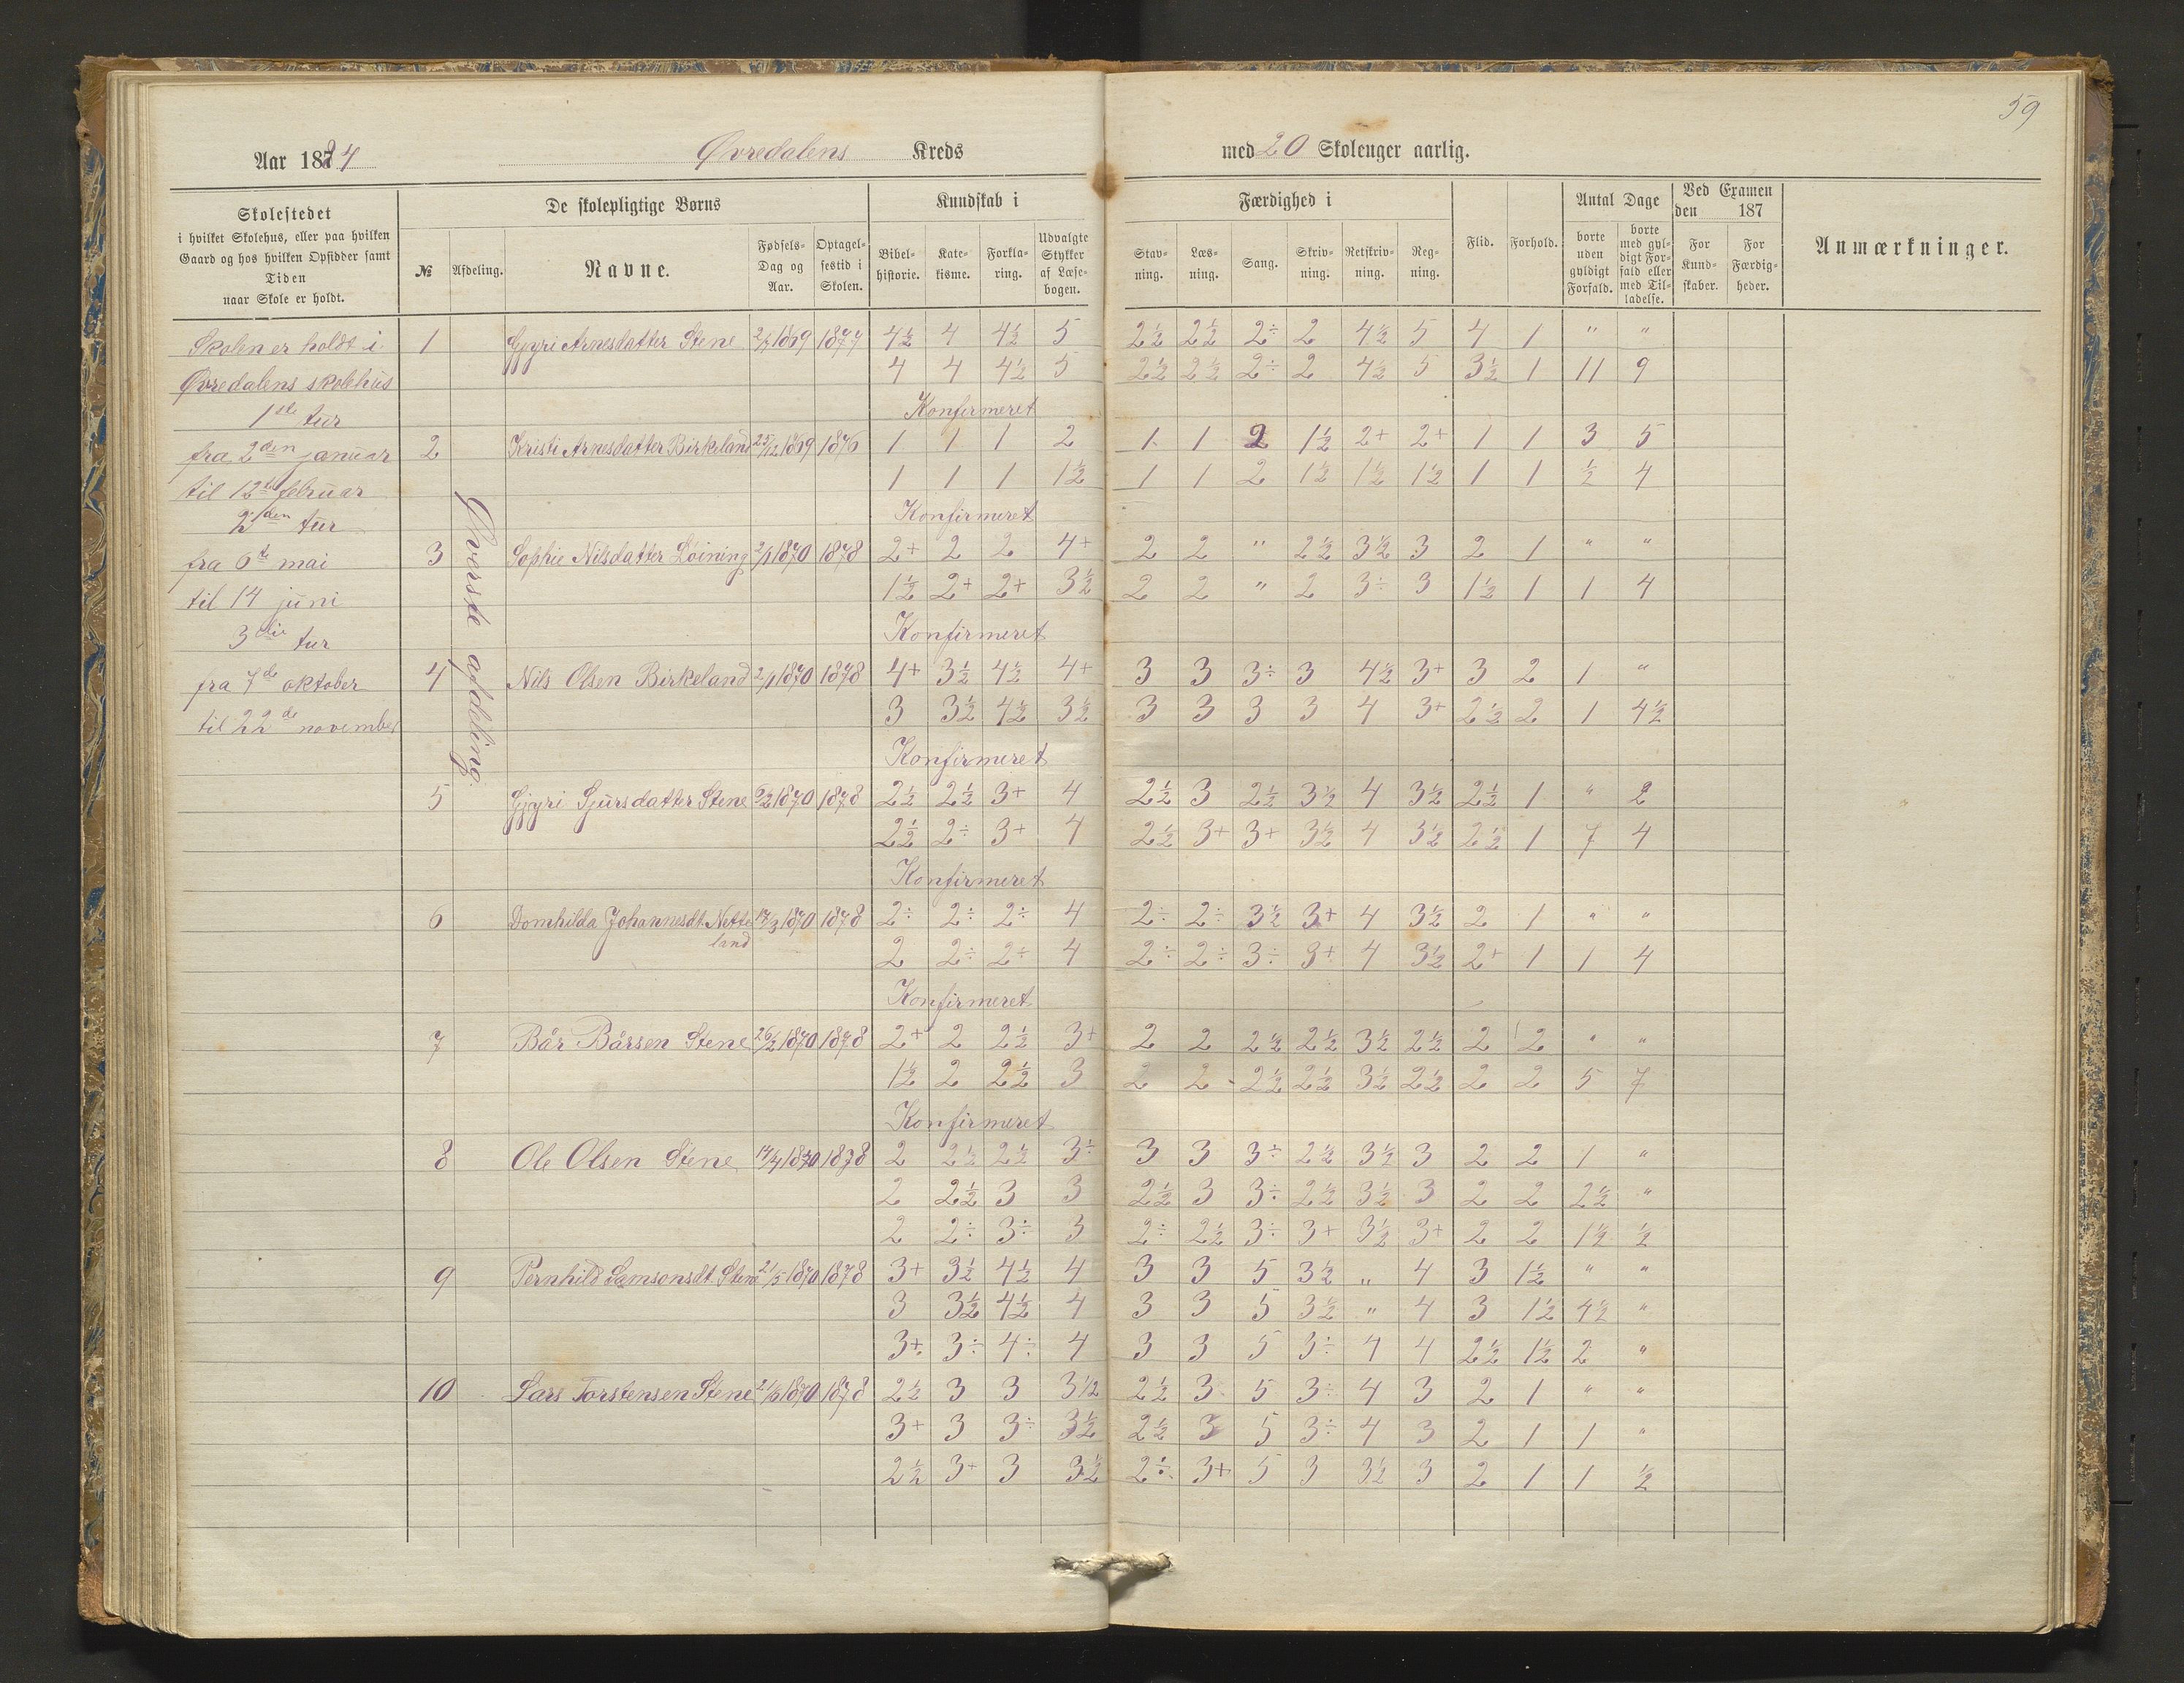 59
Aar 1884 Øvredalens Kreds med 20 Skoleuger aarlig.
Skolestedet
i hvilket Skolehus, eller paa hvilken
Gaard og hos hvilken Opsidder samt
Tiden
naar Skole er holdt.
De skolepligtige Børns
№ Afdeling. Navne. Fødsels-Dag og Aar. Optagelsestid i Skolen.
Kundskab i
Bibelhistorie. Katekisme. Forklaring. Udvalgte Stykker af Læsebogen.
Færdighed i
Stavning. Læsning. Sang. Skrivning. Retskrivning. Regning.
Flid. Forhold.
Antal Dage
borte uden gyldigt Forfald. borte med gyldigt Forfald eller med Tilladelse.
Ved Examen
den 187
For Kundskaber. For Færdigheder.
Anmærkninger.
Skolen er holdt i
Øvredalens skolehus
1ste tur
fra 2den januar
til 12te februar
2den tur
fra 6te mai
til 14 juni
3die tur
fra 7de oktober
til 22de november
Øverste afdeling.
1 Gjyri Arnesdatter Stene 1869 1877 4½ 4 4½ 5 2½ 2½ 2÷ 2 4½ 5 4 1 " "
4 4 4½ 5 2½ 2½ 2÷ 2 4½ 5 3½ 1 11 9
Konfirmeret
2 Kristi Arnesdatter Birkeland 25/12 1869 1876 1 1 1 2 1 1 2 1½ 2+ 2+ 1 1 3 5
1 1 1 1½ 1 1 2 1½ 1½ 1½ 1 1 ½ 4
Konfirmeret
3 Sophie Nilsdatter Löining 2/1 1870 1878 2+ 2 2 4+ 2 2 " 2½ 3½ 3 2 1 " "
1½ 2+ 2+ 3½ 2 2 " 2 3÷ 3 1½ 1 1 4
Konfirmeret
4 Nils Olsen Birkeland 2/1 1870 1878 4+ 3½ 4½ 4+ 3 3 3÷ 3 4½ 3+ 3 2 1 "
3 3½ 4½ 3½ 3 3 3 3 4 3+ 2½ 2 1 4½
Konfirmeret
5 Gjyri Sjursdatter Stene 1870 1878 2½ 2½ 3+ 4 2½ 3 2½ 3½ 4 3½ 2½ 1 " 2
2½ 2÷ 3+ 4 2½ 3+ 3+ 3½ 4 3½ 2½ 1 7 4
Konfirmeret
6 Domhilda Johannesdt. Netteland 17/3 1870 1878 2÷ 2÷ 2÷ 4 2÷ 2÷ 3½ 3+ 4 3½ 2 1 " "
2 2÷ 2÷ 4 2÷ 2÷ 3÷ 3+ 4 3½ 2+ 1 1 4
Konfirmeret
7 Bår Bårsen Stene 26/2 1870 1878 2+ 2 2½ 3+ 2 2 2½ 2½ 3½ 2½ 2 2 " "
1½ 2 2½ 3 2 2 2½ 2½ 3½ 2½ 2 2 5 7
Konfirmeret
8 Ole Olsen Stene 14/4 1870 1878 2 2½ 2½ 3÷ 3 3 3÷ 2½ 3½ 3 2 2 1 "
2 2½ 3 3 2½ 3 3÷ 2½ 3½ 3 2 2 2½ "
2 2÷ 3÷ 3 2÷ 2½ 3÷ 3+ 3½ 3+ 2 2 1½ ½
9 Pernhild Samsonsdt. Stene 21/5 1870 1878 3+ 3½ 4½ 4 3 3 5 3½ " 4 3 1½ " "
3 3½ 4½ 4 3 3 5 3½ " 4 3 1½ 4½ "
3+ 3÷ 4÷ 4 3 3 5 3÷ 4 4 2½ 1½ 2 "
10 Lars Torstensen Stene 21/6 1870 1878 2½ 3 3 3½ 2½ 3 5 3÷ 4 3 2 1 " "
3+ 3 3÷ 3½ 2½ 3 5 3÷ 4 3 2 1 1 "
2½ 3+ 3 3½ 2÷ 3+ 5 3 3½ 3 2 1 1 ½